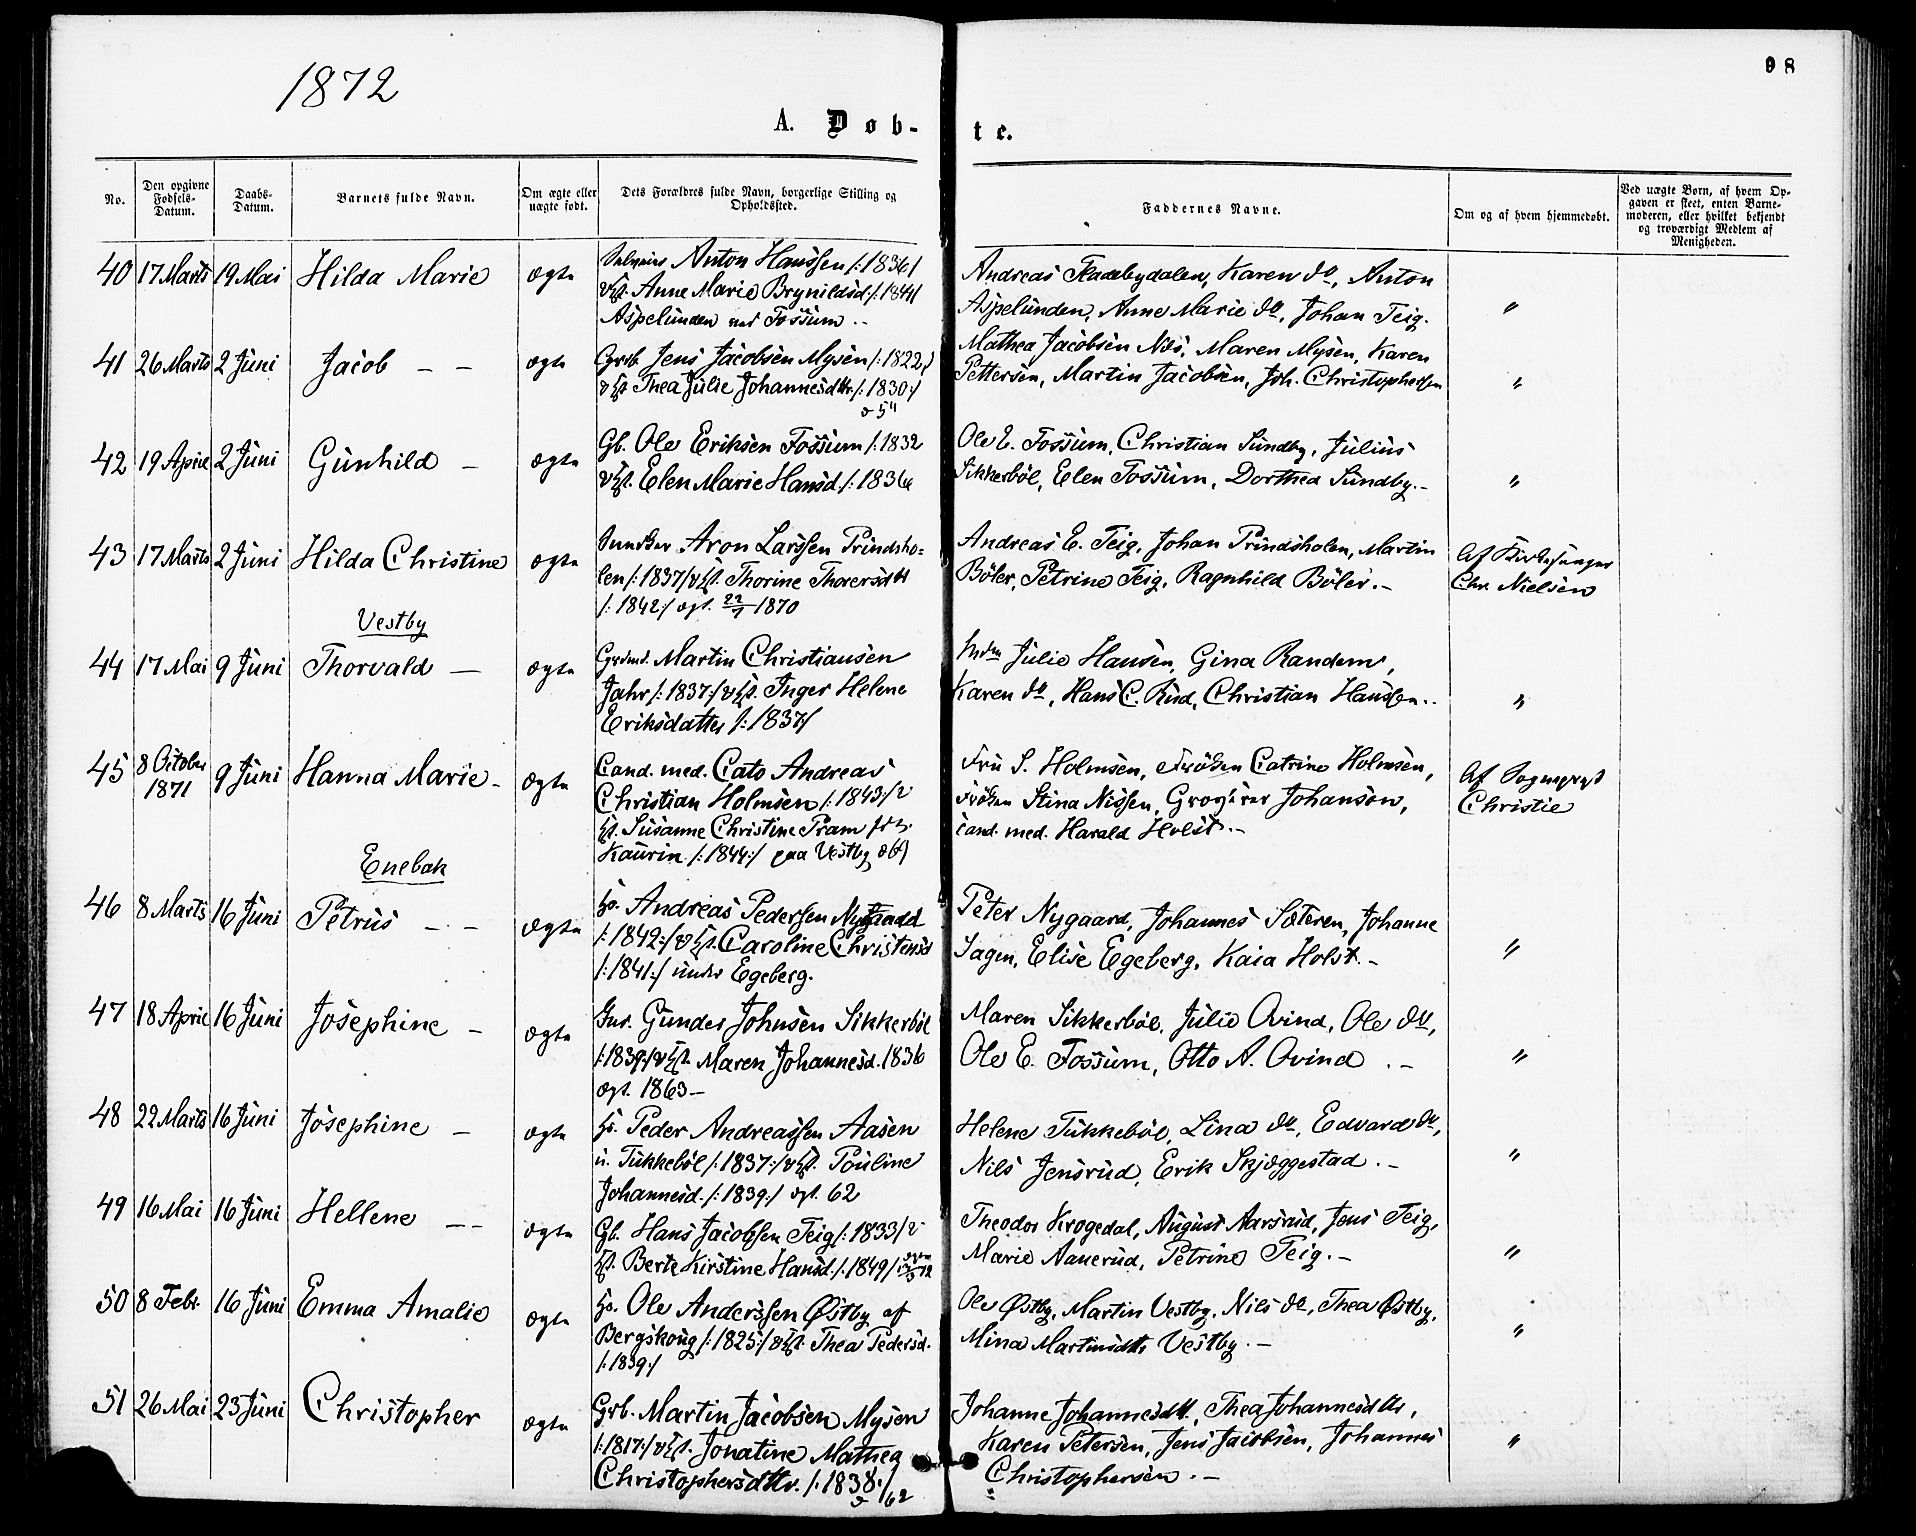 1872
98
A. Døb-
te.
No.
Den opgivne Fødsels-Datum.
Daabs-Datum.
Barnets fulde Navn.
Om ægte eller uægte født.
Dets Forældres fulde Navn, borgerlige Stilling og Opholdssted.
Faddernes Navne.
Om og af hvem hjemmedøbt.
Ved uægte Børn, af hvem Opgaven er skeet, enten Barnemoderen, eller hvilket bekjendt og troværdigt Medlem af Menigheden.
40 17 Marts 19 Mai Hilda Marie ægte
Anton Hanssen /:1836/
Anne Marie Brynildsd. /:1841
Aspelunden ved Fossum.
Andreas Fladebydalen, Karen do, Anton
Aspelunden, Anne Marie do, Johan Teig.
"
41 26 Marts 2 Juni Jacob — — ægte
Grb. Jens Jacobsen Mysen /:1822:/
Thea Julie Johannesdttr. /:1830:/
Mathea Jacobsen Næs, Maren Mysen, Karen
Pettersen, Martin Jacobsen, Joh. Christophersen
"
42 19 April 2 Juni Gunhild — ægte
Gb. Ole Eriksen Fossum /:1832
Elen Marie Hansd. /:1836
Ole E. Fossum, Christian Sundby, Julius
Sikkerbøl, Elen Fossum, Dorthea Sundby.—
"
43 17 Marts 2 Juni Hilda Christine ægte
Aron Larssen Prindsho-
len /:1837:/ Thorine Thorersdtt
/:1842:/ ægt. 22/7 1870
Andreas E. Teig, Johan Prindsholen, Martin
Bøler, Petrine Teig, Ragnhild Bøler.—
Af Kirkesanger
Chr. Nielsen
Vestby
44 17 Mai 9 Juni Thorvald — ægte
Grdmd. Martin Christiansen
Jahr /:1837:/ Inger Helene
Eriksdatter /:1837/
Mdm Julie Hansen, Gina Randem,
Karen do, Hans C. Rud, Christian Hanssen..
"
45 8 October 1871 9 Juni Hanna Marie - ægte
Cand. med. Cato Andreas
Christian Holmsen /:1843/
Susanne Christine Pram
Kaurin /:1844:/ paa Vestby
Fru S. Holmsen, Frøken Catrine Holmsen,
Frøken Stina Nissen, Grosserer Johanson,
Cand. med. Harald Holst.—
Af Sognepræst
Christie
Enebak
46 8 Marts 16 Juni Petrus — — ægte
Andreas Pedersen Nygaard
/:1842:/ Caroline Christensd
/:1841:/ under Egeberg.
Peter Nygaard, Johannes Sæteren, Johanne
Sagen, Elise Egeberg, Kaia Holst.—
"
47 18 April 16 Juni Josephine — ægte
Gunder Johnsen Sikkerbøl
/:1839:/ Maren Johannesd. 1836
ægt. 1863—
Maren Sikkerbøl, Julie Ovind, Ole do,
Ole E. Fossum, Otto A. Ovind .—
"
48 22 Marts 16 Juni Josephine — ægte
Peder Andreassen Aasen
u. Tukkebøl /:1837:/ Pouline
Johannesd. /:1839:/ ægt. 62
Helene Tukkebøl, Lina do, Edvard do,
Nils Jensrud, Erik Skjæggestad .—
"
49 16 Mai 16 Juni Hellene — — ægte
Gb. Hans Jacobsen Teig /:1833/
Berte Kirstine Hansd. /:1849/
Theodor Krogedal, August Aarsrud, Jens Teig,
Marie Aanerud, Petrine Teig.—
"
50 8 Febr. 16 Juni Emma Amalie ægte
Ole Anderssen Østby af
Bergskoug /:1825:/ Thea Pedersd.
/:1839:/
Ole Østby, Martin Vestby, Nils do, Thea Østby,
Mina Martinsdttr Vestby.—
"
51 26 Mai 23 Juni Christopher ægte
Grb. Martin Jacobsen Mysen
/:1817:/ Jonatine Mathea
Christophersdttr. /:1838:/
62
Johanne Johannesdtt., Thea Johannesdttr,
Karen Petersen, Jens Jacobsen, Johannes
Christophersen.—
"